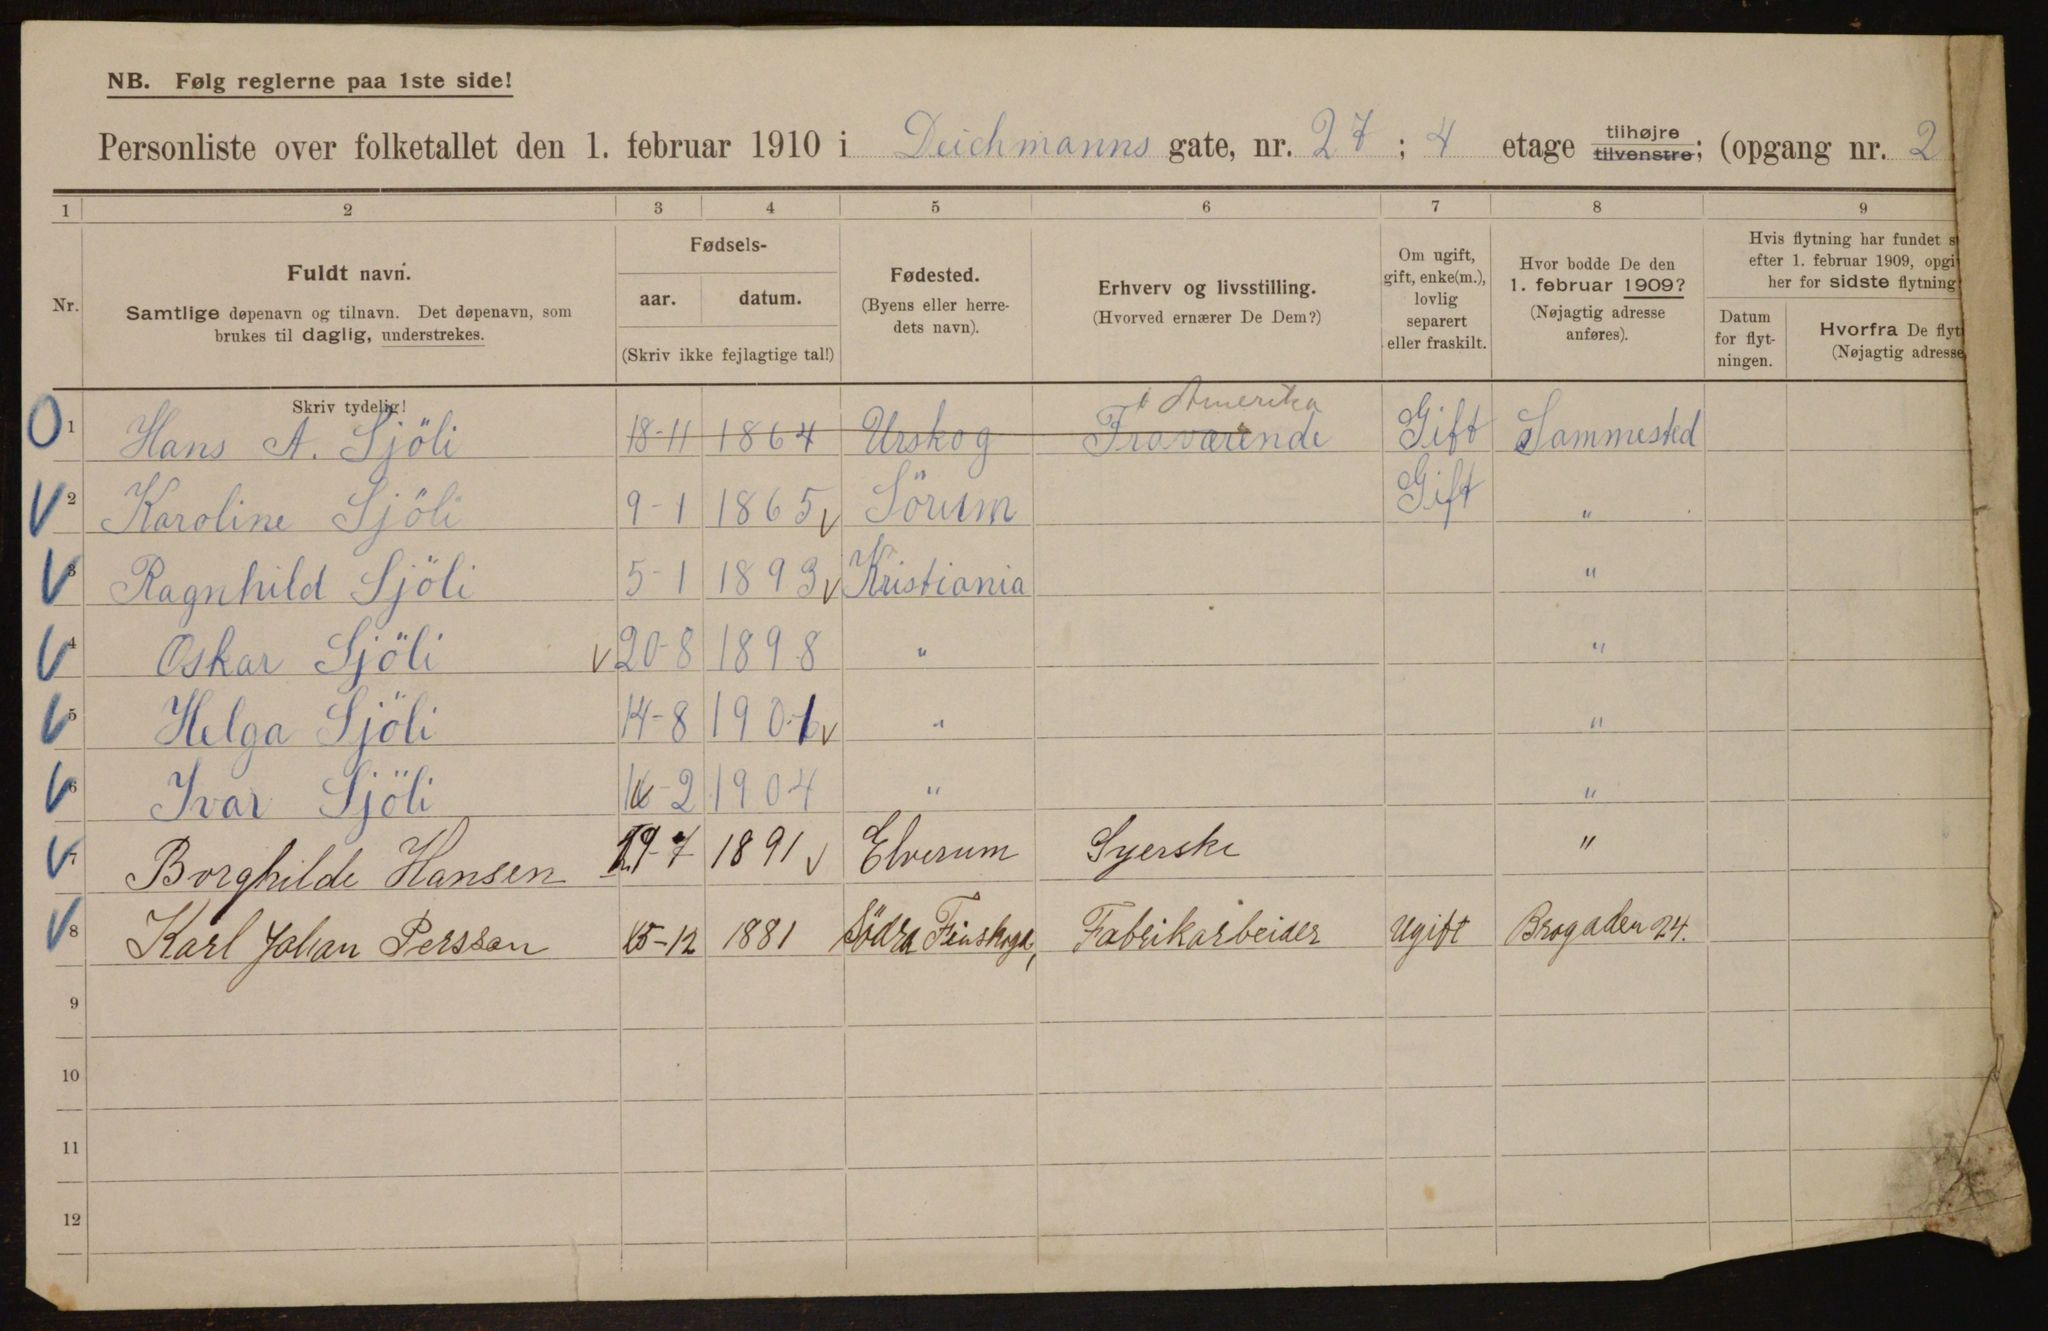 NB. Følg reglerne paa 1ste side!
Personliste over folketallet den 1. februar 1910 i Deichmanns gate, nr. 27 ; 4 etage tilhøjre tilvenstre; (opgang nr. 2
1 2 3 4 5 6 7 8 9
Nr.
Fuldt navn.
Samtlige døpenavn og tilnavn. Det døpenavn, som
brukes til daglig, understrekes.
Fødsels-
aar. datum.
(Skriv ikke fejlagtige tal!)
Fødested.
(Byens eller herre-
dets navn).
Erhverv og livsstilling.
(Hvorved ernærer De Dem?)
Om ugift,
gift, enke(m.),
lovlig
separert
eller fraskilt.
Hvor bodde De den
1. februar 1909?
(Nøjagtig adresse
anføres).
Hvis flytning har fundet s
efter 1. februar 1909, opgi
her for sidste flytning
Datum
for flyt-
ningen.
Hvorfra De flyt
(Nøjagtig adresse
Skriv tydelig!
Amerika
1 Hans A. Sjöli 18-11 1864 Urskog Fraværende Gift Sammested
2 Karoline Sjöli 9-1 1865 v Sörum Gift "
3 Ragnhild Sjöli 5-1 1893 v Kristiania "
4 Oskar Sjöli v 20-8 1898 " "
5 Helga Sjöli 14-8 1901 v " "
6 Ivar Sjöli -2 1904 " "
7 Borghilde Hansen 19-7 1891 v Elverum Syerske "
8 Karl Johan Persson 15-12 1881 Södra Finskoga, Fabrikarbeider Ugift Brogaden 24.
9
10
11
12